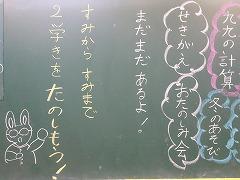 九九の計算
冬のあそび
せきがえ
おたのしみ会
まだまだ あるよ!。
すみから すみまで
2学きを たのもう!